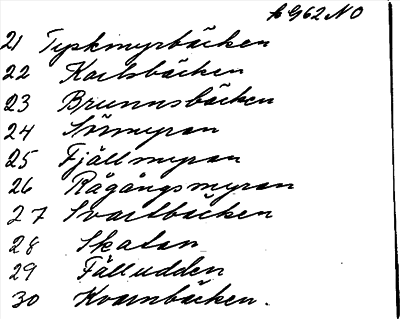 G62NO
21 Typkmyrbäcken
22 Karlsbäcken
23 Brunnsbäcken
24 Sörmyran
25 Fjällmyran
26 Rågångsmyran
27 Svartbäcken
28 Skatan
29 Fälludden
30 Kvarnbäcken.